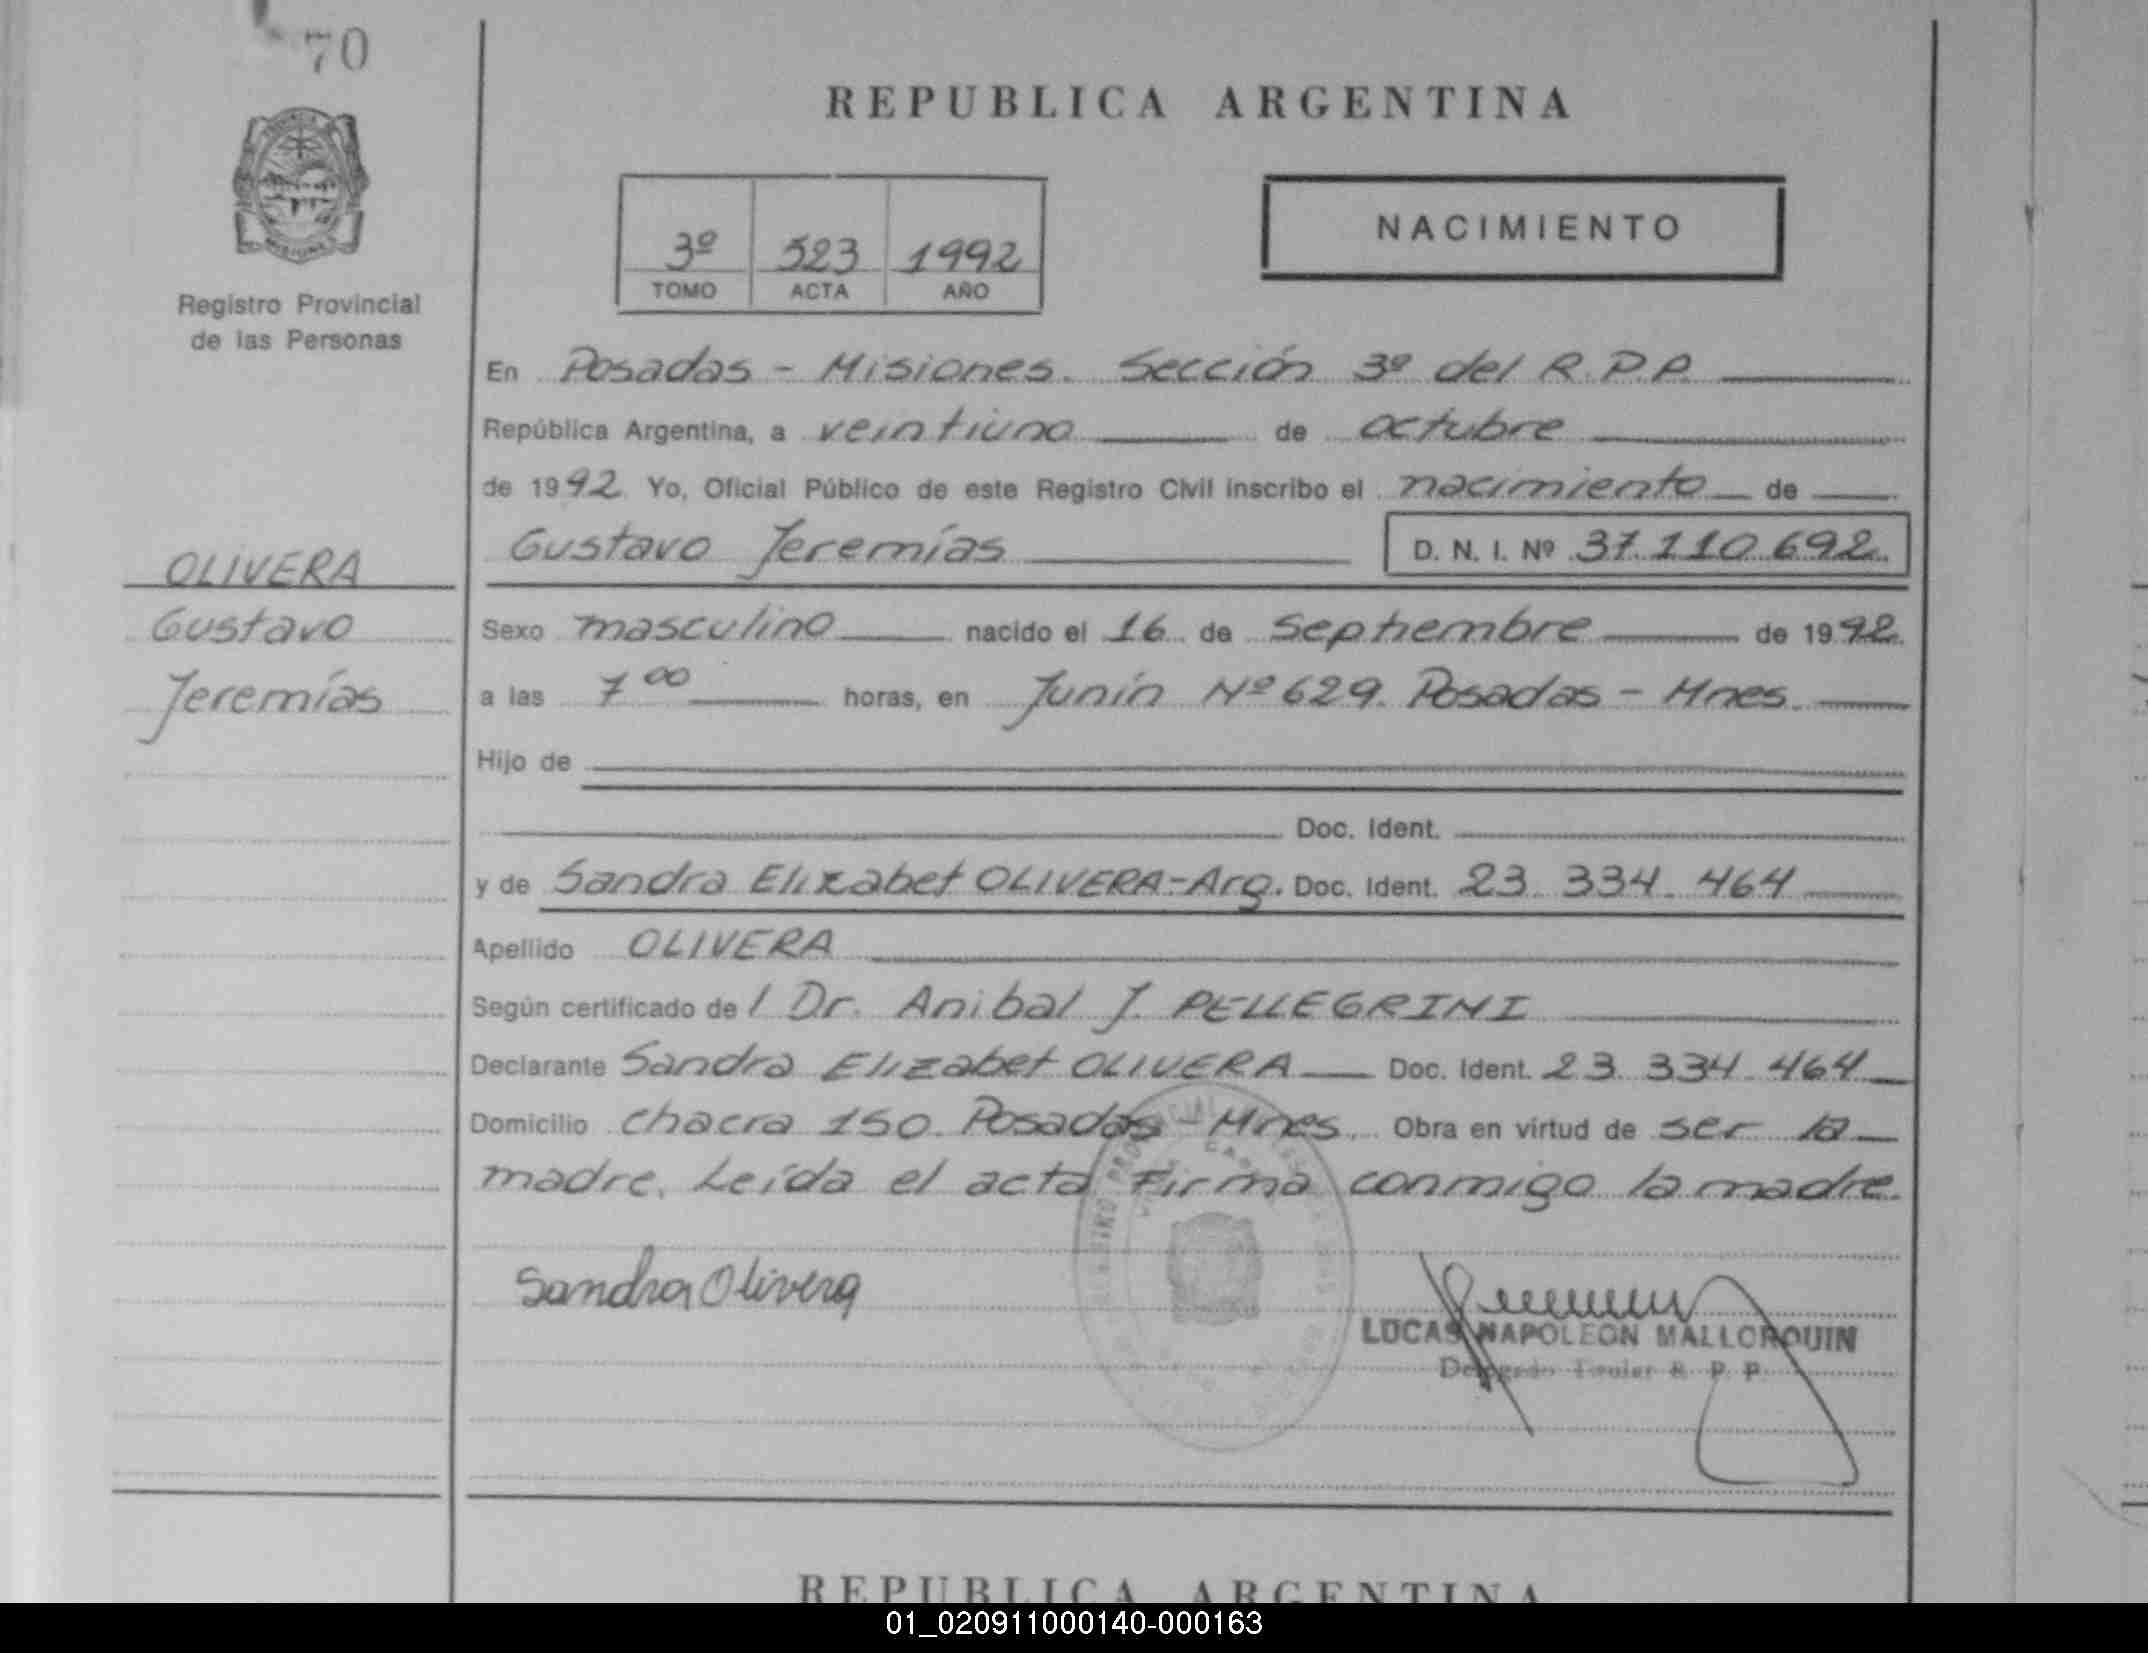 70
REPUBLICA ARGENTINA
NACIMIENTO
3º 523 1992
TOMO ACTA AÑO
Registro Provincial
de las Personas
En Posadas - Misiones. Sección 3º del R.P.P.
República Argentina, a veintiuno de octubre
de 1992 Yo, Oficial Público de este Registro Civil inscribo el nacimiento de
Gustavo Jeremías D. N. I. Nº 37.110.692
OLIVERA
Gustavo
Jeremías
Sexo masculino nacido el 16 de septiembre de 1992.
a las 7 00 horas, en Junín Nº 629. Posadas - Mnes.
Hijo de
Doc. Ident.
y de Sandra Elizabet OLIVERA-Arg. Doc. Ident. 23.334.464
Apellido OLIVERA
Según certificado de l Dr. Anibal J. PELLEGRINI
Declarante Sandra Elizabet OLIVERA Doc. Ident. 23.334.464
Domicilio chacra 150. Posadas - Mnes. Obra en virtud de ser la
madre. Leída el acta firma conmigo la madre.
Sandra Olivera
LUCAS NAPOLEON MALLORQUIN
Delegado Titular R. P. P.
REPUBLICA ARGENTINA
01_020911000140-000163